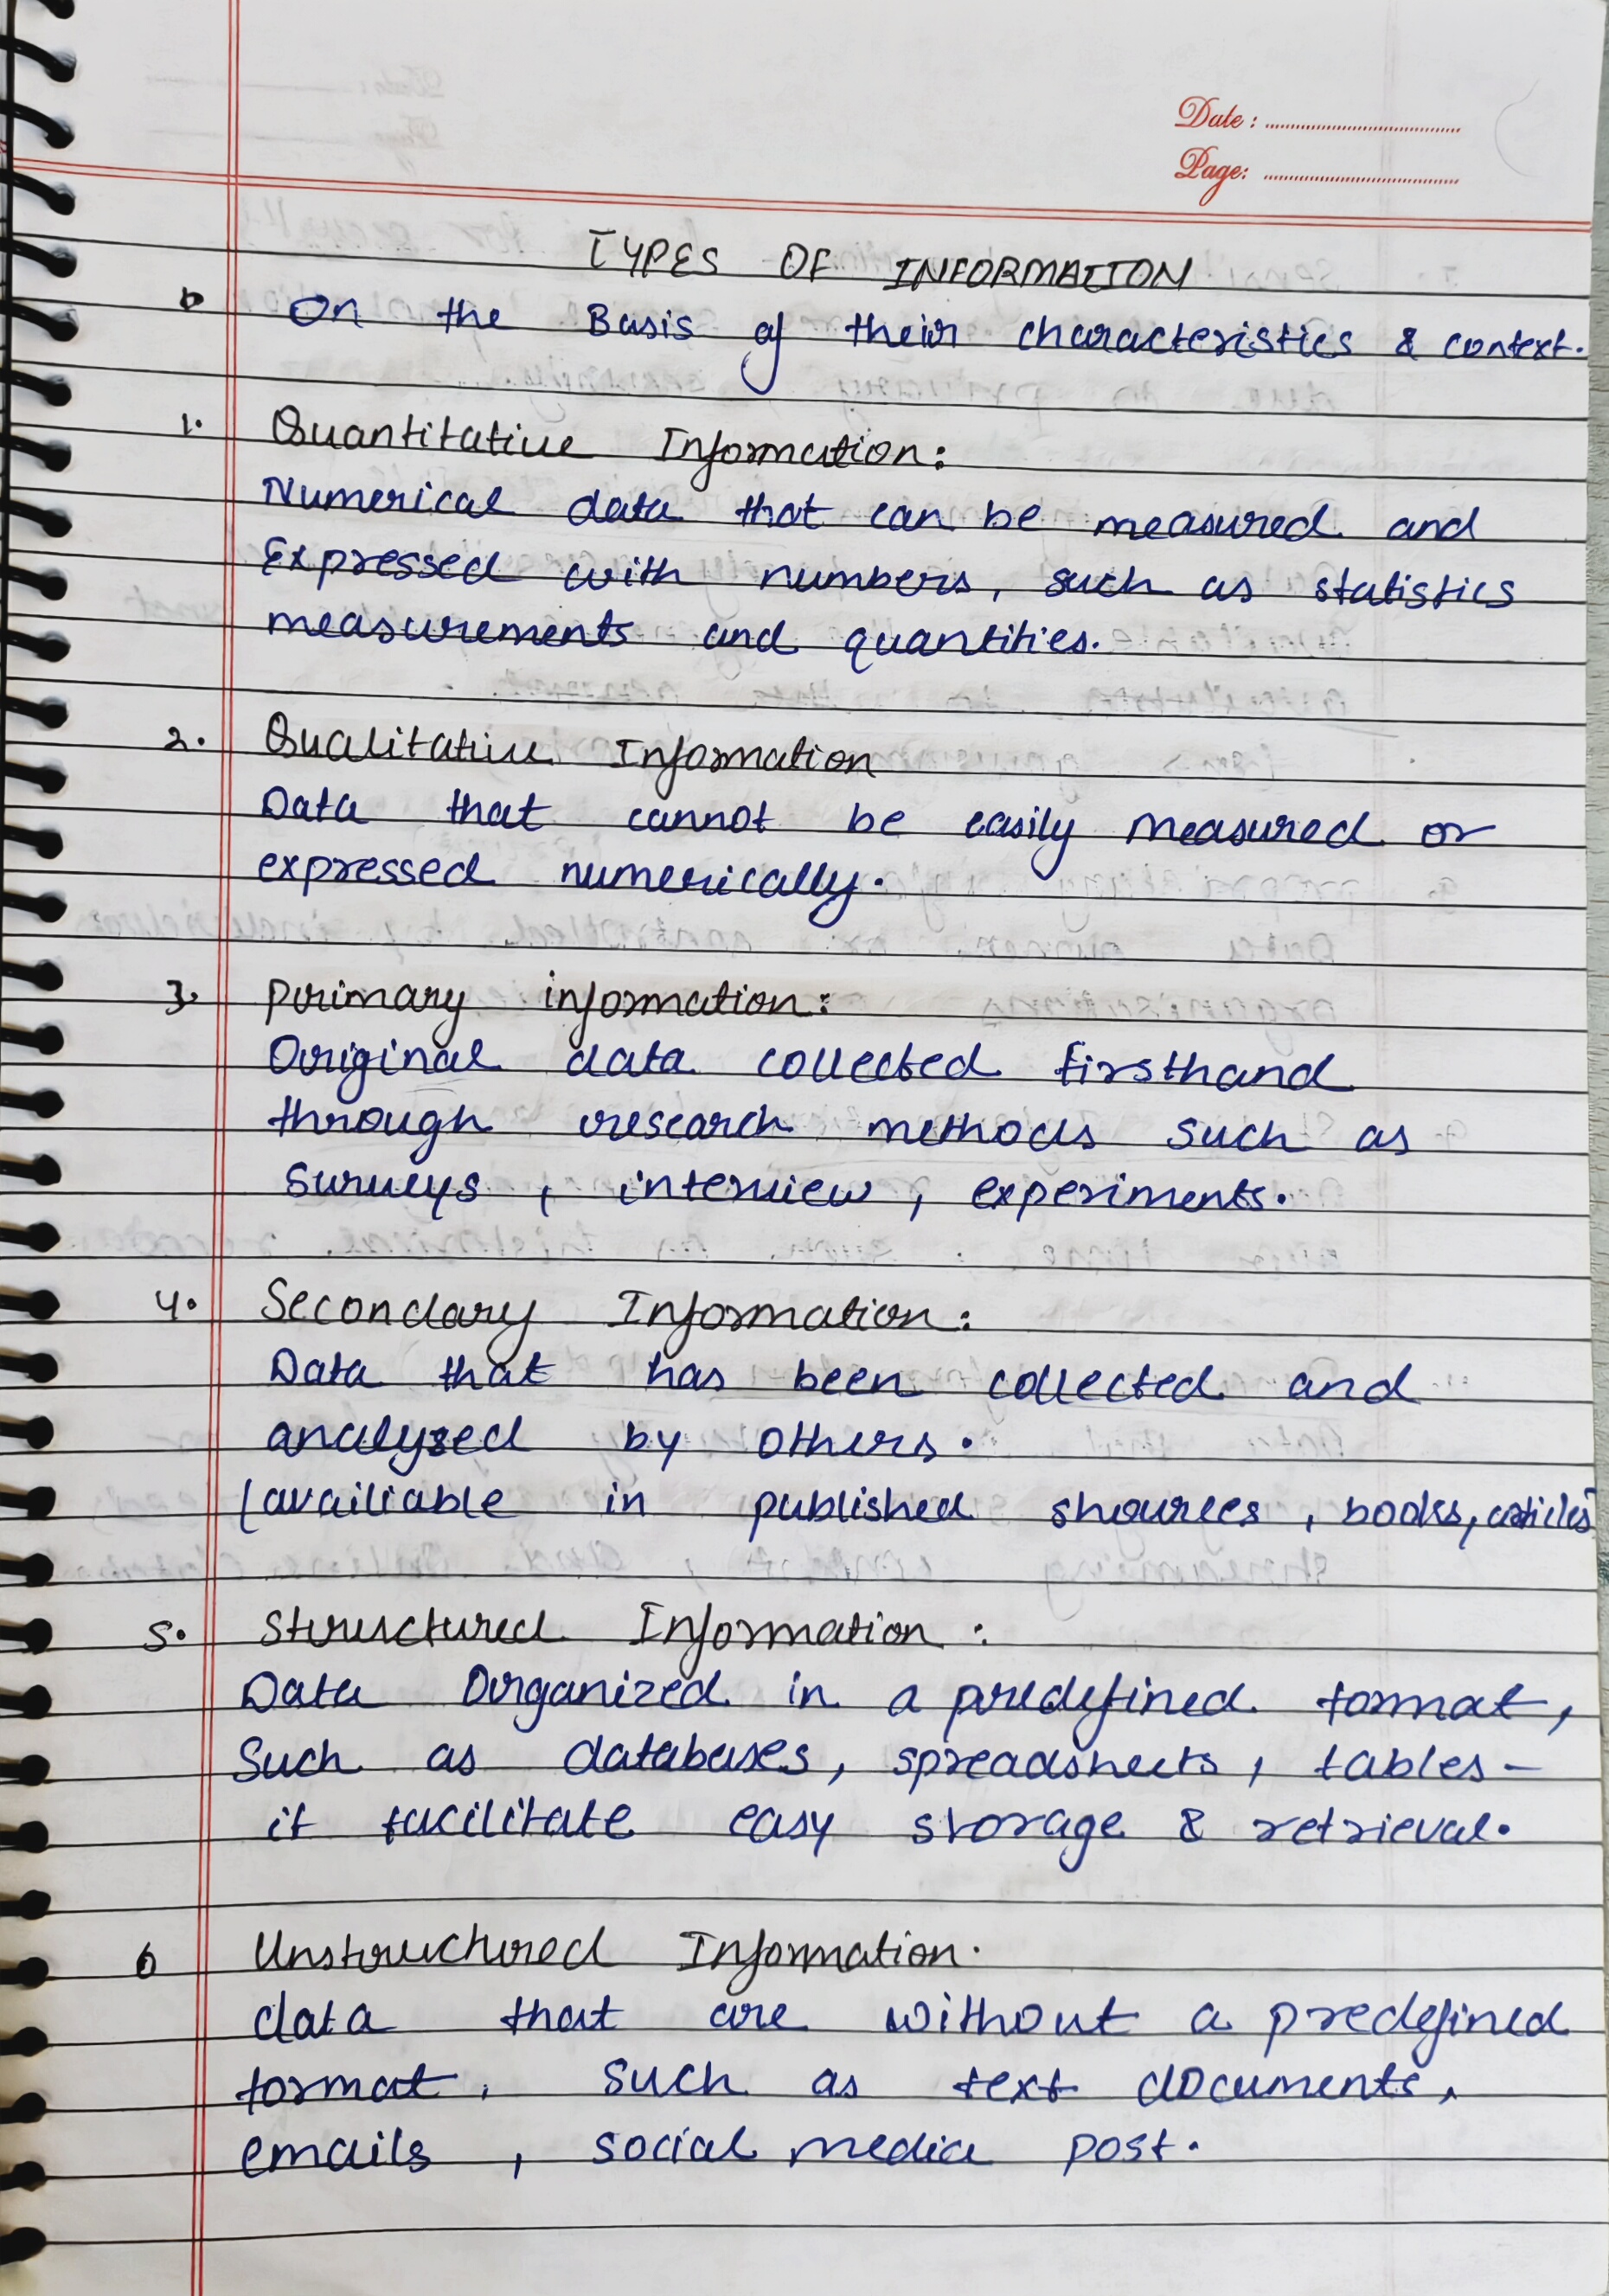 Date :
Page:
TYPES OF INFORMATION
On the Basis of their characteristics & context.
1. Quantitative Information:
Numerical data that can be measured and
Expressed with numbers, such as statistics
measurements and quantities.
2. Qualitative Information
Data that cannot be easily measured or
expressed numerically.
3. primary information:
Original data collected firsthand
through research methods such as
surveys , interview , experiments.
4. Secondary Information:
Data that has been collected and
analyzed by others.
(availiable in published shources , books, articles
5. Structured Information :
Data Organized in a predefined format,
Such as databases, spreadsheets, tables -
it facilitate easy storage & retrieval.
6 Unstructured Information.
data that are without a predefined
format, such as text documents,
emails , social media post.